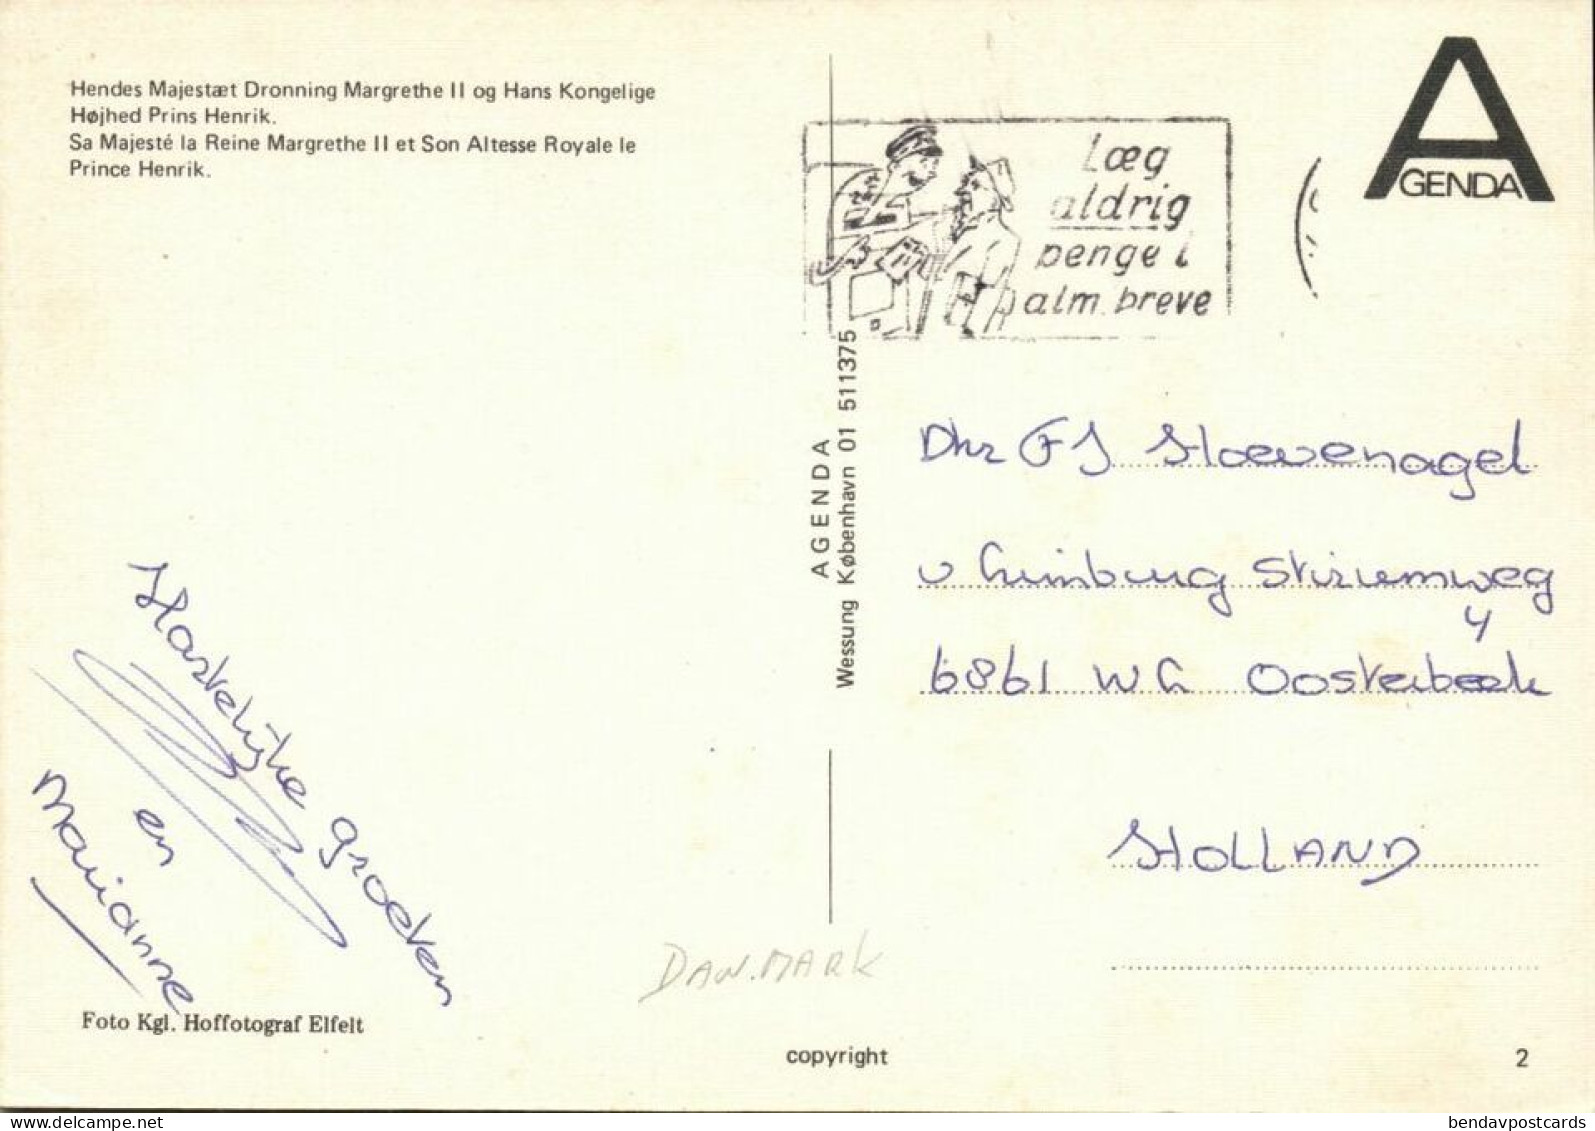 Hendes Majestæt Dronning Margrethe II og Hans Kongelige
Højhed Prins Henrik.
Sa Majesté la Reine Margrethe II et Son Altesse Royale le
Prince Henrik.
Læg
aldrig
penge i
alm. breve
A
GENDA
AGENDA
Wessung København 01 511375
Dhr FJ Hoevenagel
v Limburg Stirumweg
4
6861 WL Oosterbeek
HOLLAND
Hartelijke groeten
en
Marianne
DANMARK
Foto Kgl. Hoffotograf Elfelt
copyright
2
bendavpostcards